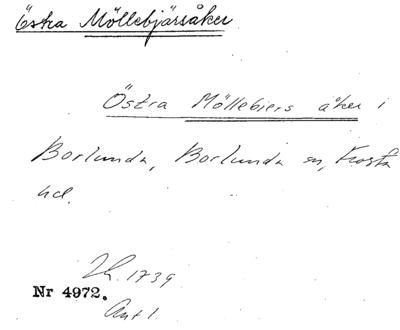 Östra Möllebjärsåker
Östra Möllebiers åker i
Borlunda, Borlunda sn, Frosta
hd.
Lh. 1739
Nr 4972.
Akt 1.